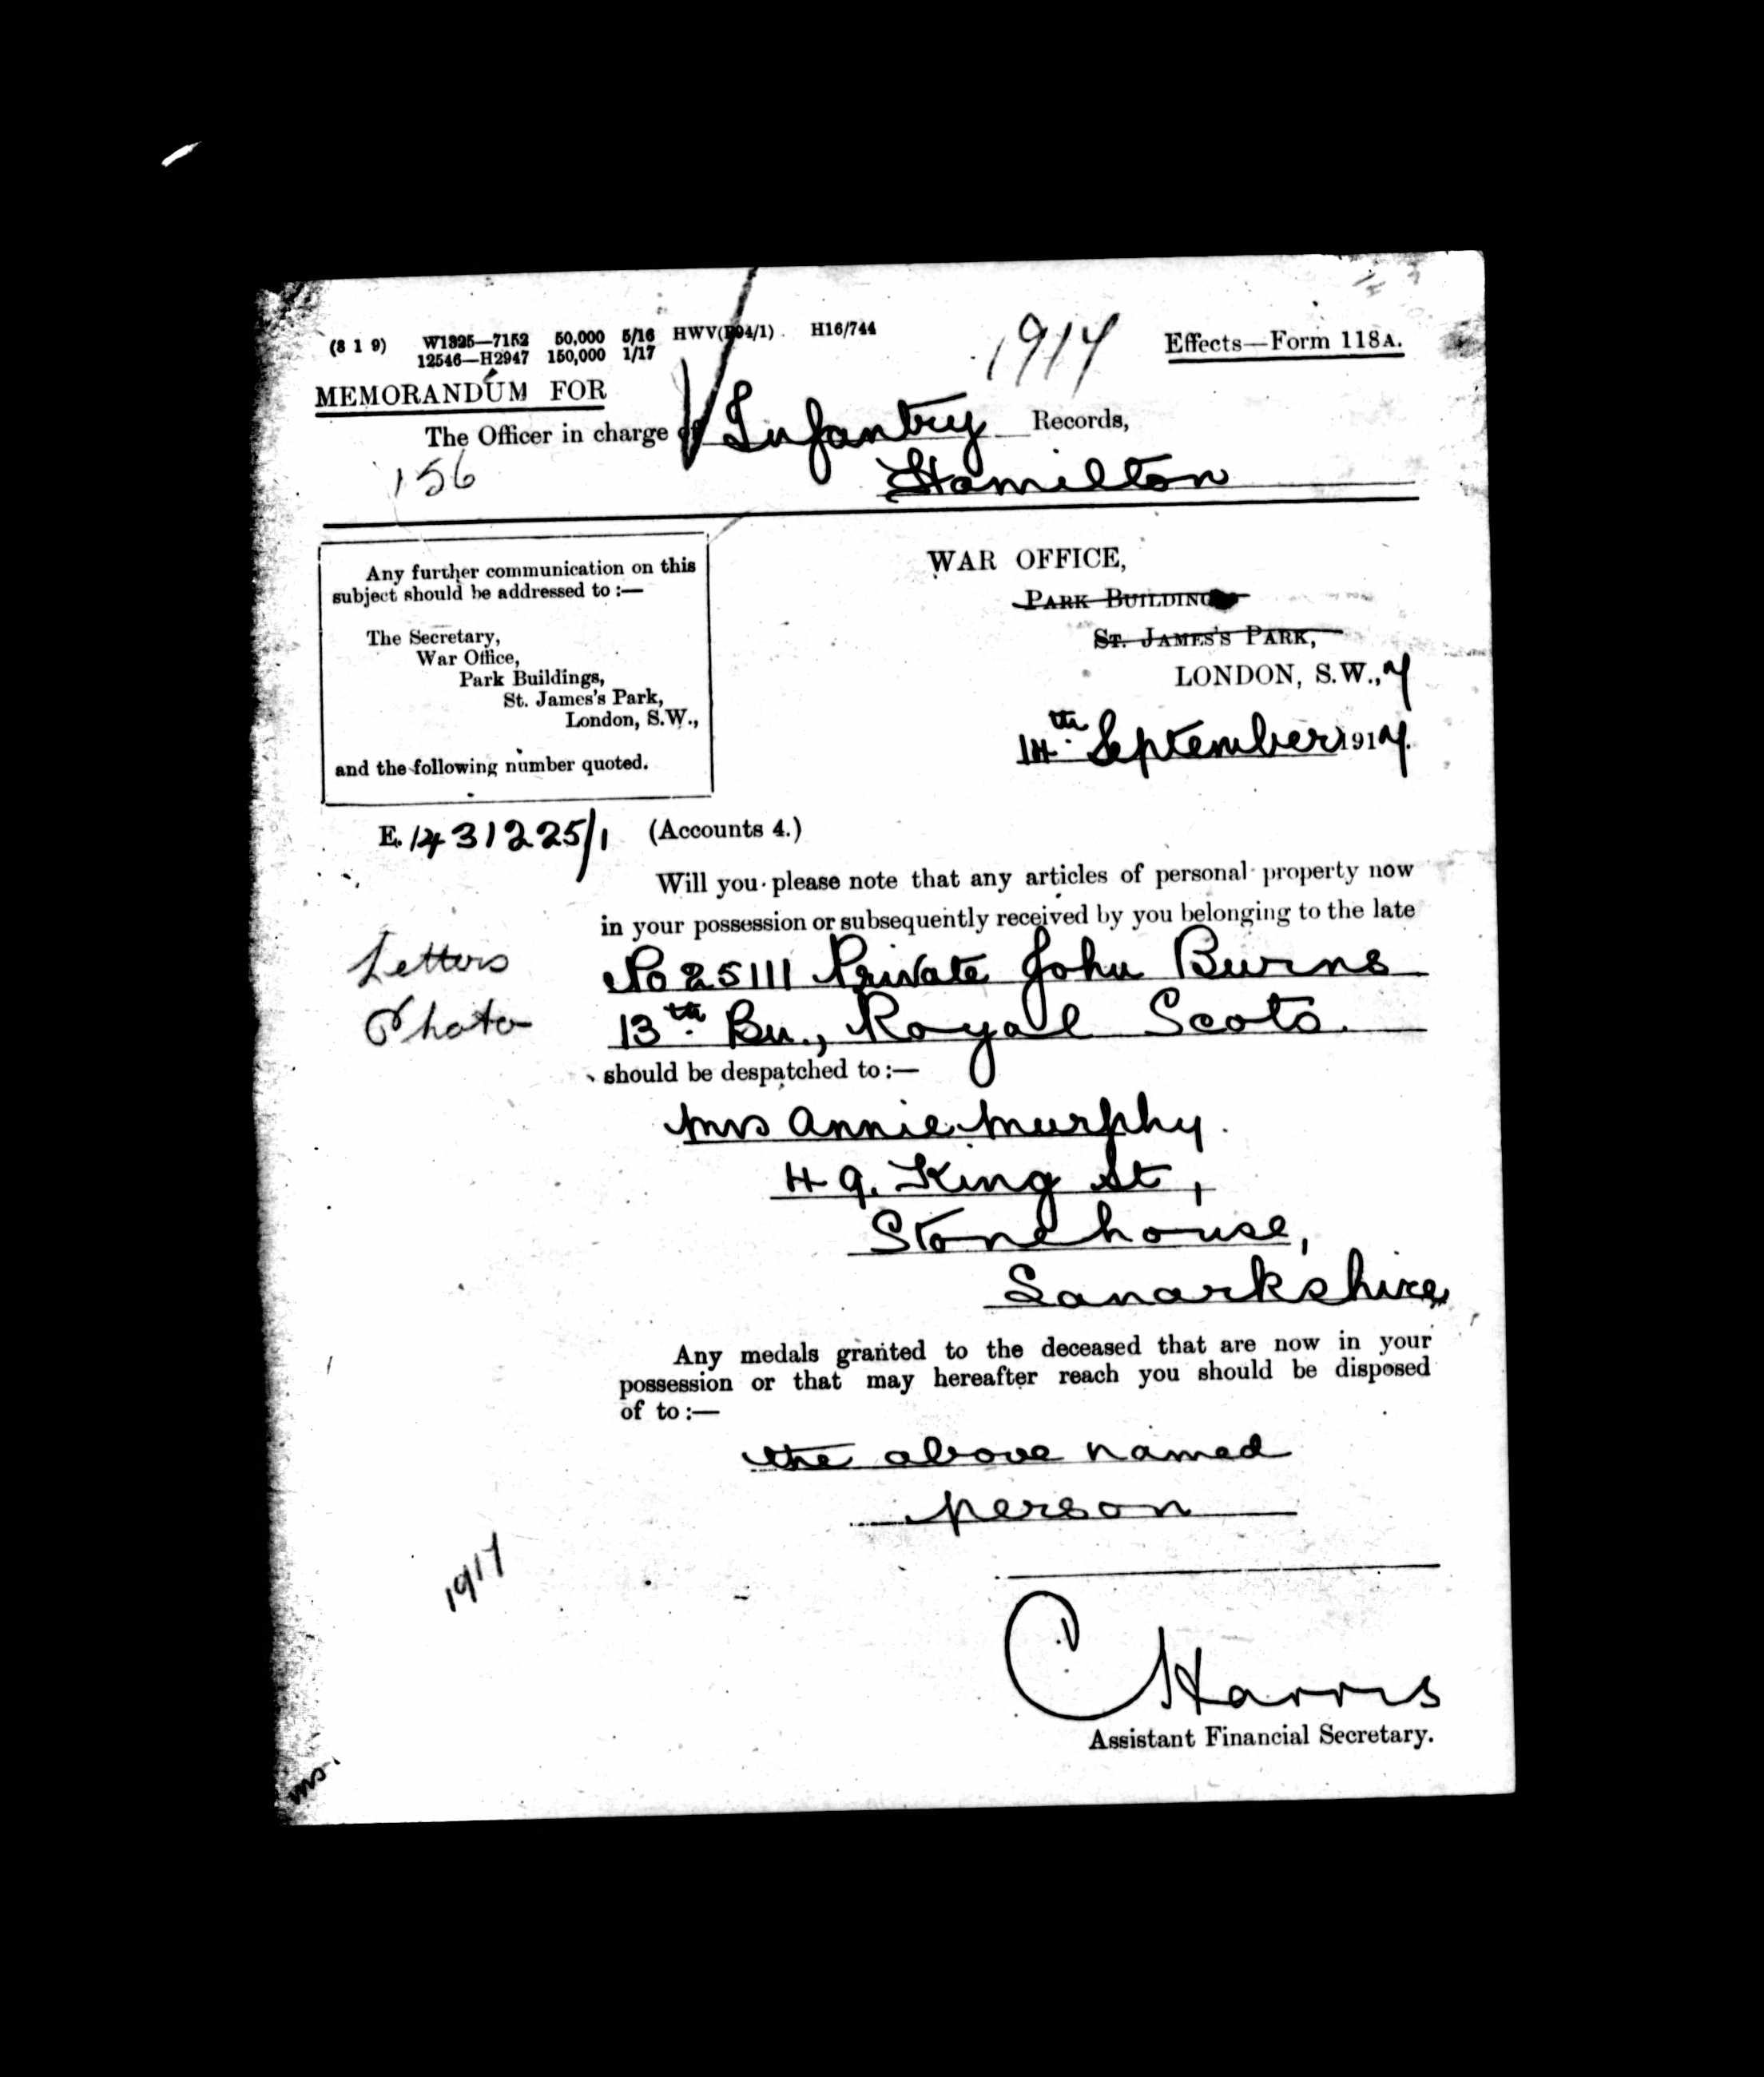 (8 1 9) W1825—7152 50,000 5/16 HWV(P04/1). H16/744
12546—H2947 150,000 1/17
1914
Effects—Form 118A.
MEMORANDUM FOR
The Officer in charge of Infantry Records,
Hamilton
156
Any further communication on this
subject should be addressed to :—
The Secretary,
War Office,
Park Buildings,
St. James's Park,
London, S.W.,
and the following number quoted.
WAR OFFICE,
PARK BUILDINGS
ST. JAMES'S PARK,
LONDON, S.W.,7
14th September 1917.
E. 1431225/1 (Accounts 4.)
Will you please note that any articles of personal property now
in your possession or subsequently received by you belonging to the late
Letters
Photo
No 25111 Private John Burns
13th Bn., Royal Scots.
should be despatched to :—
Mrs Annie Murphy.
49. King St,
Stonehouse,
Lanarkshire
Any medals granted to the deceased that are now in your
possession or that may hereafter reach you should be disposed
of to :—
the above named
person
1917
C Harris
Assistant Financial Secretary.